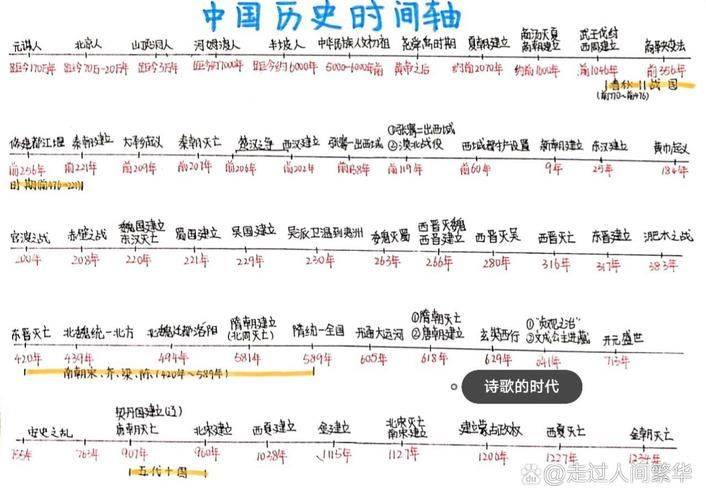 中国历史时间轴
元谋人 北京人 山顶洞人 河姆渡人 半坡人 中华民族人文初祖 尧舜禹时期 夏朝建立 商汤灭夏 武王伐纣 商鞅变法
商朝建立 西周建立
距今170万年 距今70万-20万年 距今3万年 距今约7000年 距今约6000年 黄帝之后 约前2070年 约前1600年 前1046年 前356年
春秋 战国
(前770~前476)
修建都江堰 秦朝建立 大泽起义 秦朝灭亡 楚汉之争 西汉建立 张骞一出西域 ①张骞二出西域 西域都护设置 新朝建立 东汉建立 黄巾起义
②漠北战役
前256年 前221年 前209年 前207年 前206年 前202年 前138年 前119年 前60年 9年 25年 184年
时期(前476-221)
官渡之战 赤壁之战 魏国建立 蜀国建立 吴国建立 吴派卫温到夷洲 魏灭蜀 西晋灭魏 西晋灭吴 西晋灭亡 东晋建立 淝水之战
东汉灭亡 西晋建立
200年 208年 220年 221年 229年 230年 263年 266年 280年 316年 317年 383年
东晋灭亡 北魏统一北方 北魏迁都洛阳 隋朝建立 隋统一全国 开通大运河 ①隋朝灭亡 玄奘西行 ①"贞观之治" 开元盛世
(北周灭亡) ②唐朝建立 ②文成公主进藏
420年 439年 494年 581年 589年 605年 618年 629年 641年 713年
南朝宋、齐、梁、陈(420年~589年)
诗歌的时代
安史之乱 契丹国建立(辽) 北宋建立 西夏建立 金建立 北宋灭亡 建立蒙古政权 西夏灭亡 金朝灭亡
唐朝灭亡 南宋建立
755年 763年 907年 960年 1038年 1115年 1127年 1206年 1227年 1234年
五代十国
@走过人间繁华